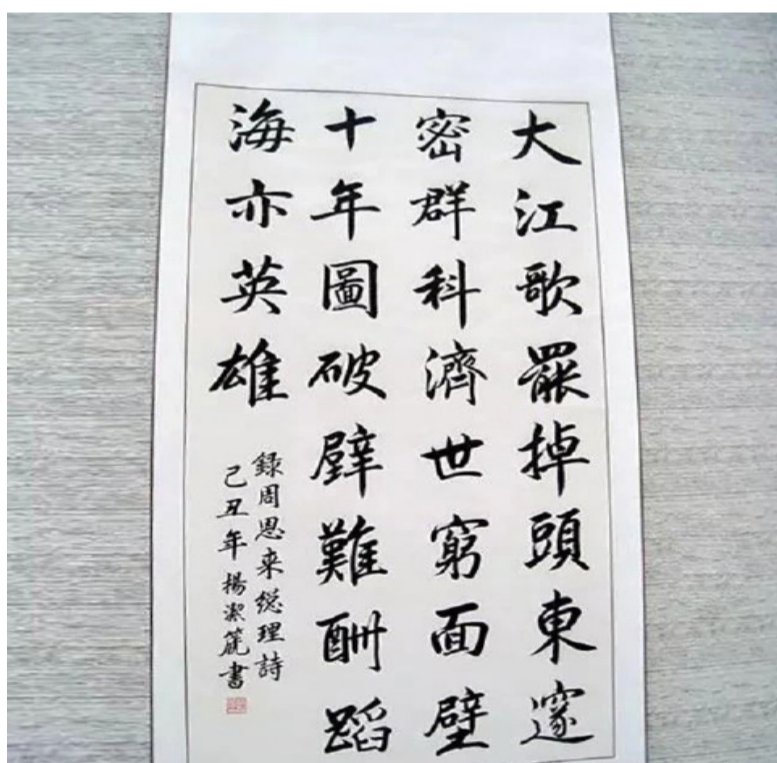 大江歌罷掉頭東邃
密群科濟世窮面壁
十年圖破壁難酬蹈
海亦英雄
録周恩来緫理詩
己丑年楊潔篪書